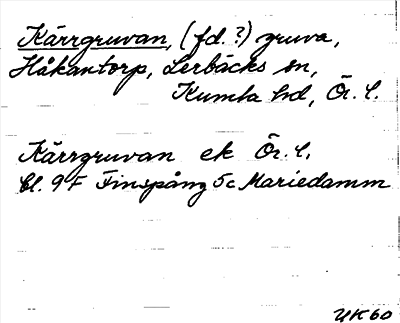 Kärrgruvan, (fd.?) gruva,
Håkantorp, Lerbäcks sn,
Kumla hd, Ör. l.
Kärrgruvan ek Ör. l.
bl. 9 F Finspång 5c Mariedamm
UK60